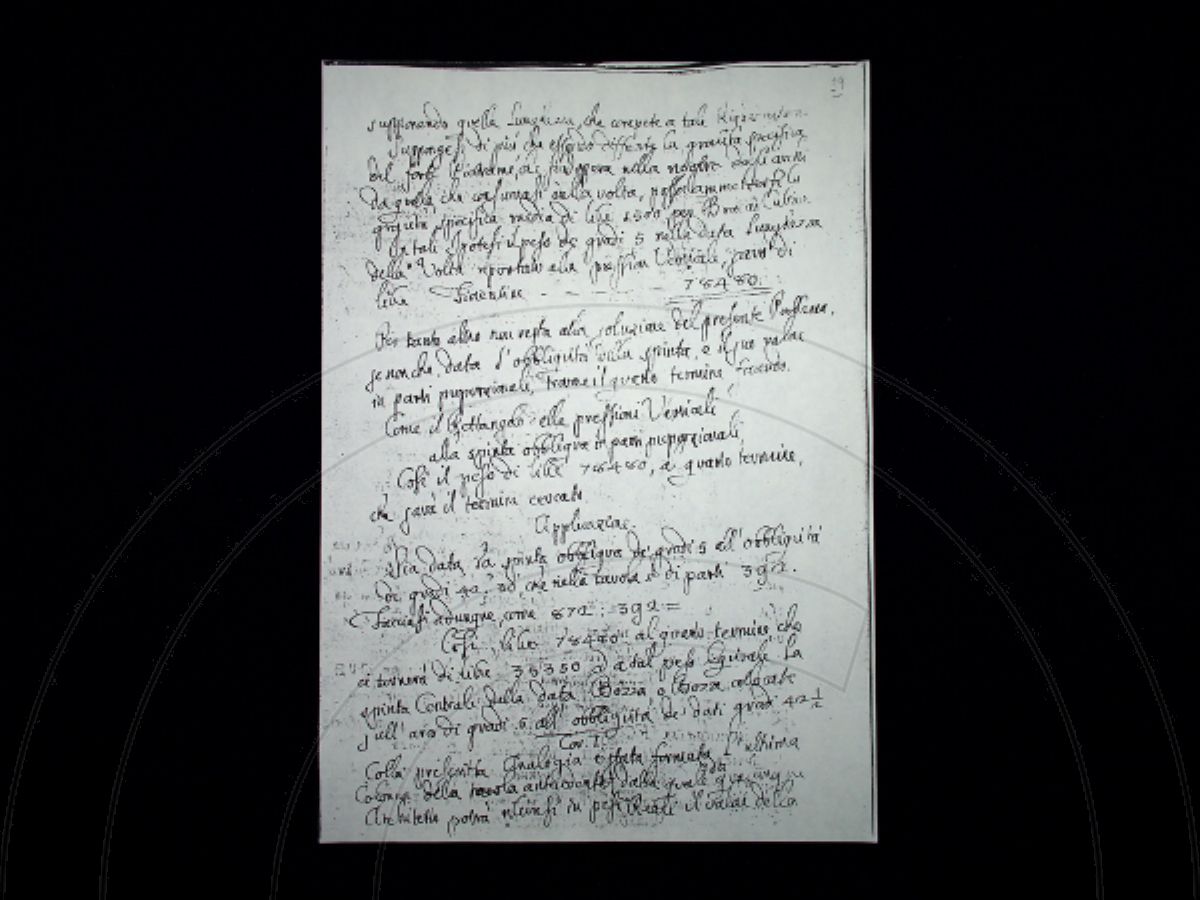 19
supponendo quella Lunghezza, che compete a tali
Suppongasi di più che essendo differente la gravità specifica
del forte
da quella, che
gravità specifica media di libe 1500 per Braccio Cubico
In tali Ipotesi il peso de gradi 5 nella data Lunghezza
della Volta riportato alla pression Verticale, sarà di
libre Fiorentine - - - 78480.
Per tanto altro non resta alla soluzione del presente Problema,
se non che, data l'obbliquità della spinta, e il suo valore
in parti proporzionali, trovare il quarto termine facendo.
Come il Rettangolo delle pressioni Verticali
alla spinta obbliqua in parti proporzionali
Così il peso di libe 78480, a quarto termine,
che sarà il termine cercato
Applicazione.
Sia data la spinta obbliqua de' gradi 5 all'obbliquità
di gradi 42. 30' che nella tavola è di parti 392.
Facciasi adunque, come 872 : 392 =
Così, libe 78480 al quarto termine, che
ci tornerà di libe 35350 ed a tal peso Eguivale la
spinta Centrale della data Bozza o Bozze collocate
sull'arco di gradi 5 all'obbliquità de' dati gradi 42 1/2
Cor. I.
Colla presente Analogia è stata formata l'ultima
Colonna della tavola antecedente dalla quale
Architetto potrà rilevasi in pesi Reali il valor della